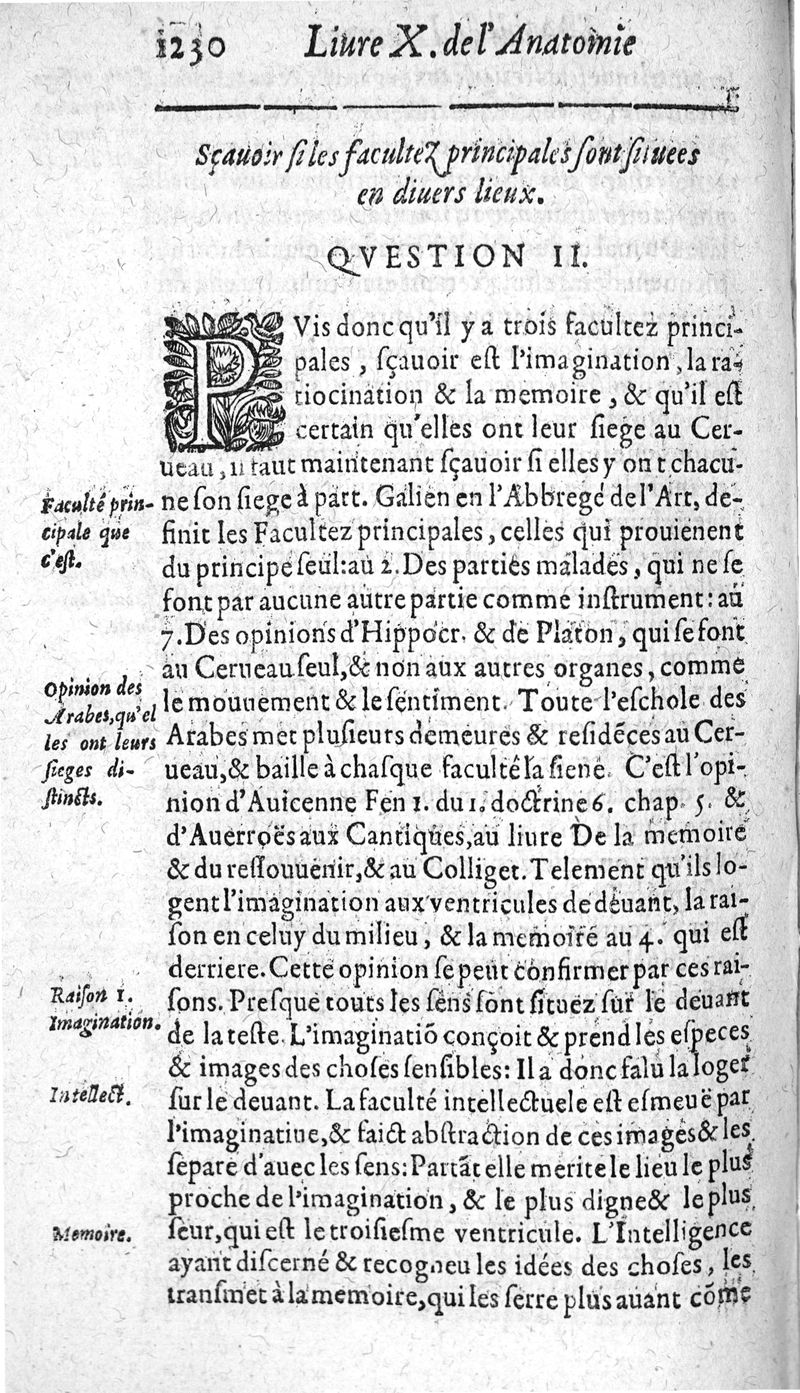 1230 Liure X. de l'Anatomie
Sçauoir si les facultez principales sont situees
en diuers lieux.
QVESTION II.
PVis donc qu'il y a trois facultez princi-
pales, sçauoir est l'imagination, la ra-
tiocination & la memoire, & qu'il est
certain qu'elles ont leur siege au Cer-
ueau, il faut maintenant sçauoir si elles y ont chacu-
ne son siege à part. Galien en l'Abbregé de l'Art, de-
finit les Facultez principales, celles qui prouienent
du principe seul: au 2. Des parties malades, qui ne se
font par aucune autre partie comme instrument: au
7. Des opinions d'Hippocr. & de Platon, qui se font
au Cerueau seul, & non aux autres organes, comme
le mouuement & le sentiment. Toute l'eschole des
Arabes met plusieurs demeures & residẽces au Cer-
ueau, & baille à chasque faculté la siene. C'est l'opi-
nion d'Auicenne Fen 1. du 1. doctrine 6. chap. 5. &
d'Auerroës aux Cantiques, au liure De la memoire
& du ressouuenir, & au Colliget. Telement qu'ils lo-
gent l'imagination aux ventricules de deuant, la rai-
son en celuy du milieu, & la memoire au 4. qui est
derriere. Cette opinion se peut confirmer par ces rai-
sons. Presque touts les sens sont situez sur le deuant
de la teste. L'imaginatiõ conçoit & prend les especes
& images des choses sensibles: Il a donc falu la loger
sur le deuant. La faculté intellectuele est esmeuë par
l'imaginatiue, & faict abstraction de ces images & les
separe d'auec les sens: Partãt elle merite le lieu le plus
proche de l'imagination, & le plus digne & le plus
seur, qui est le troisiesme ventricule. L'Intelligence
ayant discerné & recogneu les idées des choses, les
transmet à la memoire, qui les serre plus auant cõme
Faculté prin-
cipale que
c'est.
Opinion des
Arabes, qu'el
les ont leurs
sieges di-
stincts.
Raison 1.
Imagination.
Intellect.
Memoire.